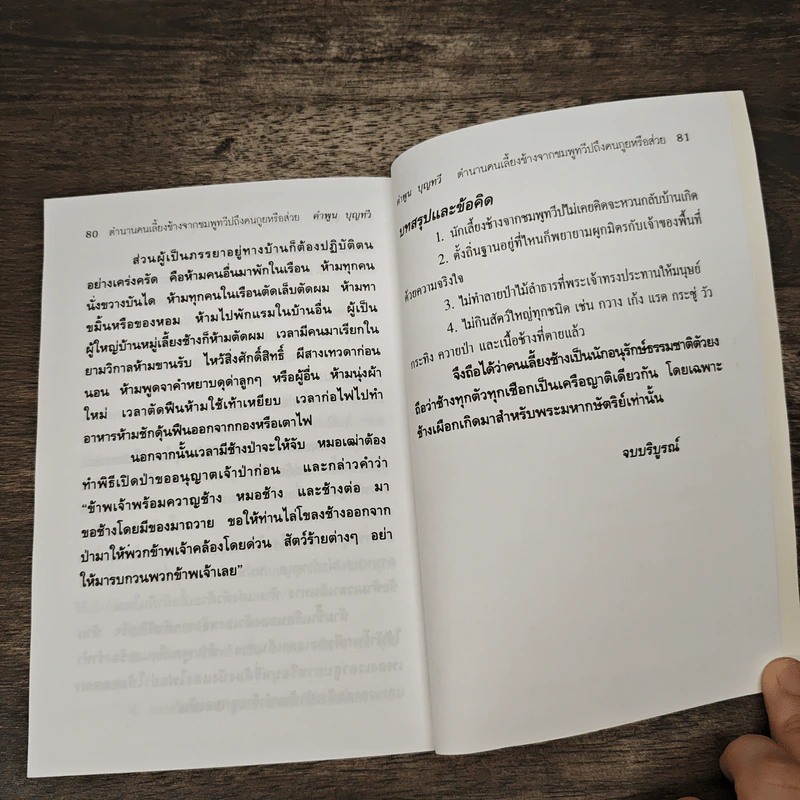 80 ตำนานคนเลี้ยงช้างจากชมพูทวีปถึงคนกูยหรือส่วย คำพูน บุญทวี
ส่วนผู้เป็นภรรยาอยู่ทางบ้านก็ต้องปฏิบัติตน
อย่างเคร่งครัด คือห้ามคนอื่นมาพักในเรือน ห้ามทุกคน
นั่งขวางบันได ห้ามทุกคนในเรือนตัดเล็บตัดผม ห้ามทา
ขมิ้นหรือของหอม ห้ามไปพักแรมในบ้านอื่น ผู้เป็น
ผู้ใหญ่บ้านหมู่เลี้ยงช้างก็ห้ามตัดผม เวลามีคนมาเรียกใน
ยามวิกาลห้ามขานรับ ไหว้สิ่งศักดิ์สิทธิ์ ผีสางเทวดาก่อน
นอน ห้ามพูดจาคำหยาบดุด่าลูกๆ หรือผู้อื่น ห้ามนุ่งผ้า
ใหม่ เวลาตัดฟืนห้ามใช้เท้าเหยียบ เวลาก่อไฟไปทำ
อาหารห้ามชักดุ้นฟืนออกจากกองหรือเตาไฟ
นอกจากนั้นเวลามีช้างป่าจะให้จับ หมอเฒ่าต้อง
ทำพิธีเปิดป่าขออนุญาตเจ้าป่าก่อน และกล่าวคำว่า
“ข้าพเจ้าพร้อมควาญช้าง หมอช้าง และช้างต่อ มา
ขอช้างโดยมีของมาถวาย ขอให้ท่านไล่โขลงช้างออกจาก
ป่ามาให้พวกข้าพเจ้าคล้องโดยด่วน สัตว์ร้ายต่างๆ อย่า
ให้มารบกวนพวกข้าพเจ้าเลย”
คำพูน บุญทวี ตำนานคนเลี้ยงช้างจากชมพูทวีปถึงคนกูยหรือส่วย 81
บทสรุปและข้อคิด
1. นักเลี้ยงช้างจากชมพูทวีปไม่เคยคิดจะหวนกลับบ้านเกิด
2. ตั้งถิ่นฐานอยู่ที่ไหนก็พยายามผูกมิตรกับเจ้าของพื้นที่
ด้วยความจริงใจ
3. ไม่ทำลายป่าไม้ลำธารที่พระเจ้าทรงประทานให้มนุษย์
4. ไม่กินสัตว์ใหญ่ทุกชนิด เช่น กวาง เก้ง แรด กระซู่ วัว
กระทิง ควายป่า และเนื้อช้างที่ตายแล้ว
จึงถือได้ว่าคนเลี้ยงช้างเป็นนักอนุรักษ์ธรรมชาติตัวยง
ถือว่าช้างทุกตัวทุกเชือกเป็นเครือญาติเดียวกัน โดยเฉพาะ
ช้างเผือกเกิดมาสำหรับพระมหากษัตริย์เท่านั้น
จบบริบูรณ์